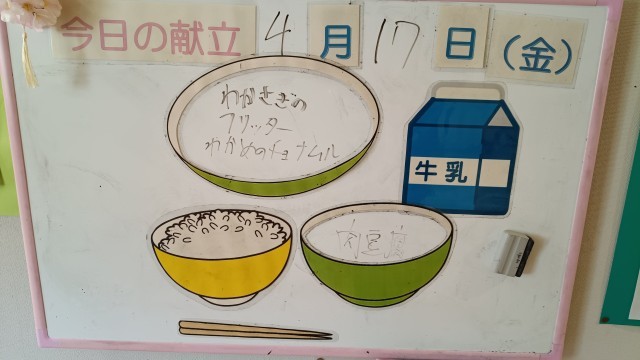 今日の献立 4月17日(金)
わかさぎの
フリッター
わかめのチョナムル
牛乳
肉豆腐